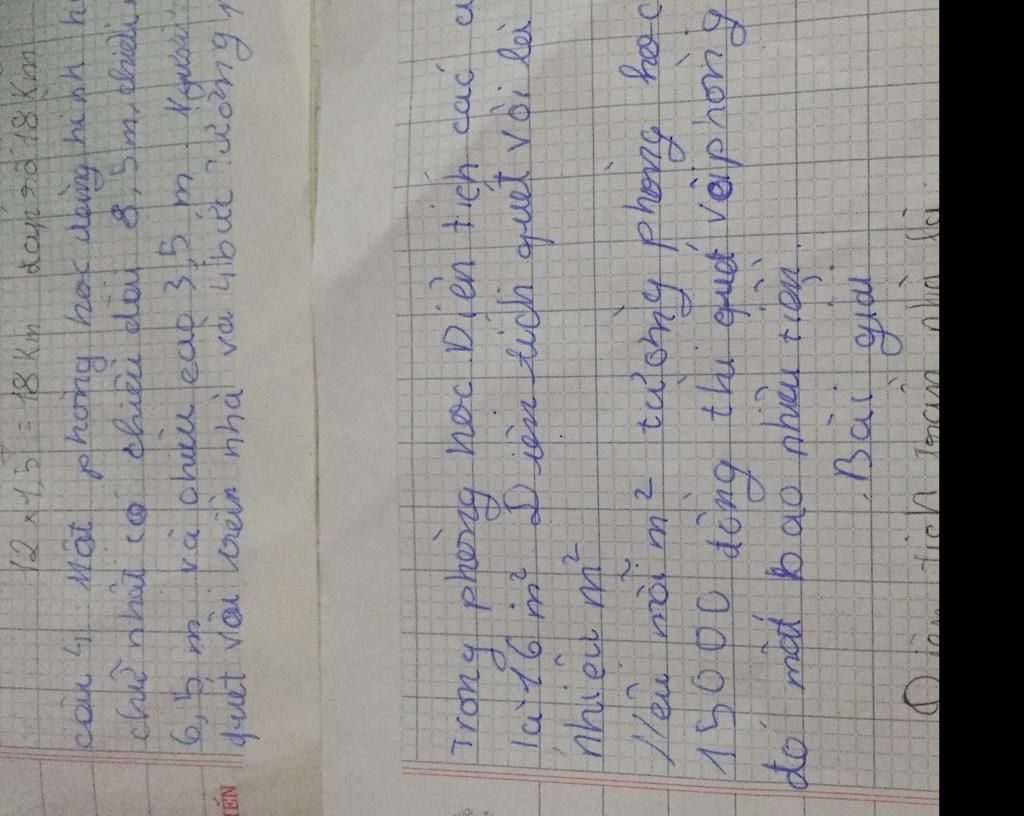 12 × 1,5 = 18 Km đáp số 18 Km
câu 4. Một phòng học dạng hình
chữ nhật có chiều dài 8,5m, chiều
6,5 m và chiều cao 3,5 m. Người
quét vôi trần nhà và 4 bức tường
trong phòng học Diện tích các
là 16 m² Diện tích quét vôi là
nhiêu m²
Nếu mỗi m² tường phòng học
15000 đồng thì quét vôi phòng
đó mất bao nhiêu tiền.
Bài giải
Diện tích trần nhà là
ẾN